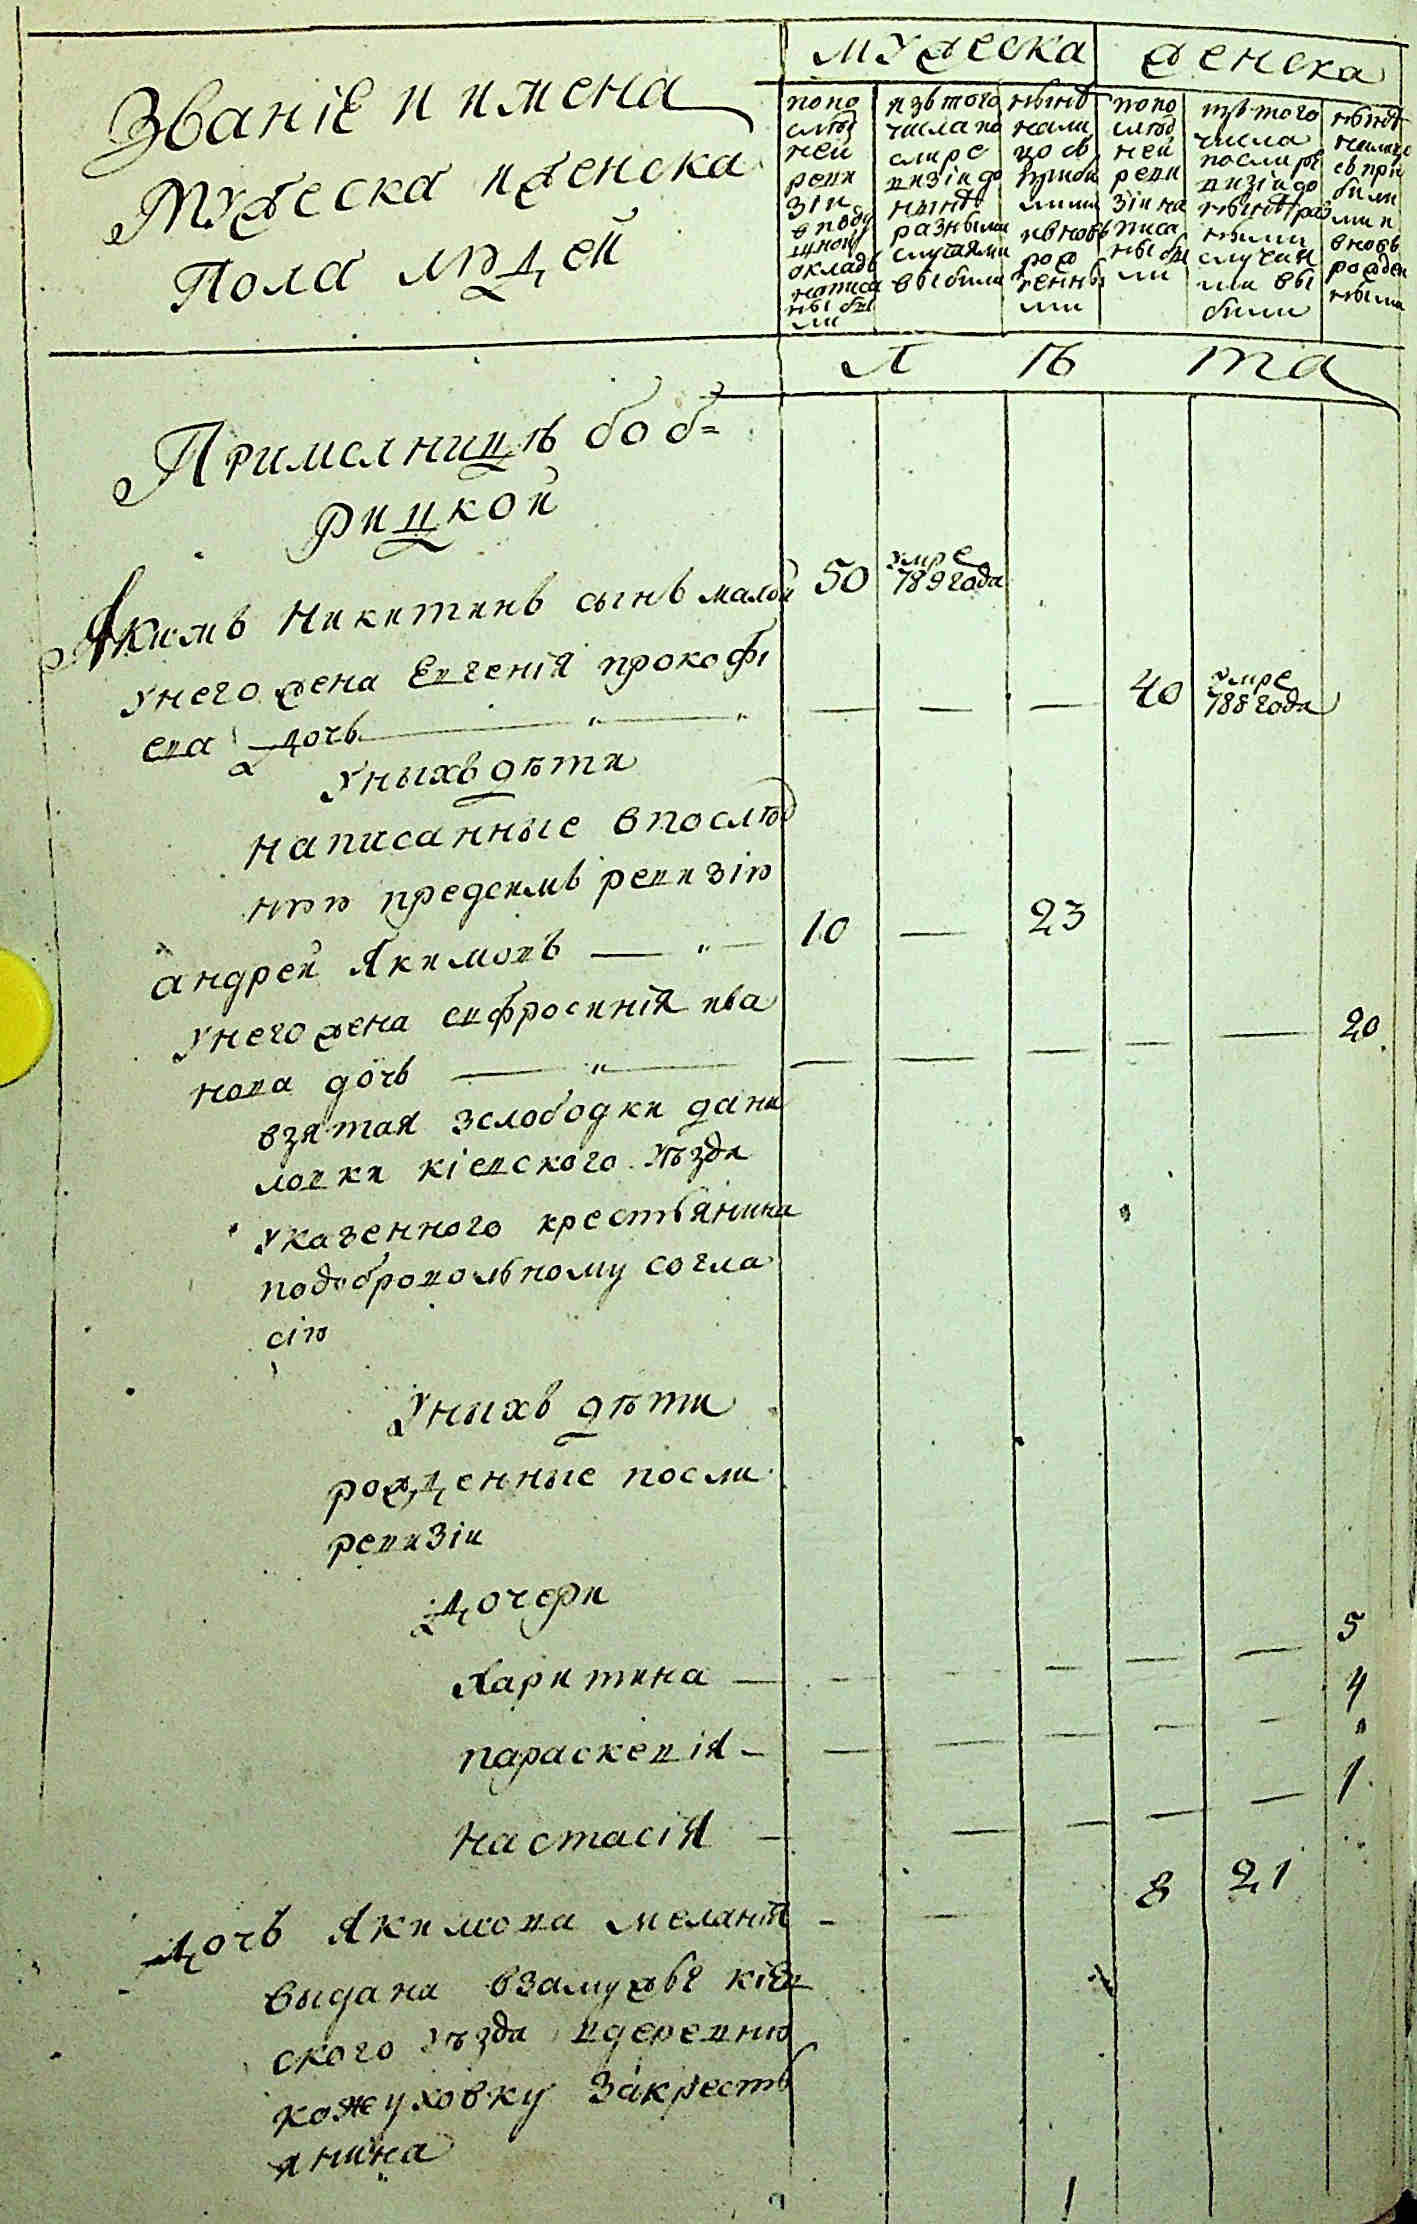 мужеска
женска
Званіе и имена
Мужеска и женска
Пола людей
попо
слѣд
ней
реви
зіи
вподу
шной
окладъ
написа
ны бы
ли
изъ того
числа по
сли ре
визіи до
нынѣ
разными
случаями
выбыли
нынѣ
нали
цо съ
прибы
лими
ивновъ
рож
денны
ми
попо
слѣд
ней
реви
зіи на
писа
ны бы
ли
изъ того
числа
посли ре
визіи до
нынѣ раз
ными
случая
ми вы
были
нынѣ
налицо
съ при
были
ми и
вновь
рожден
ными
Л ѣ та
Примелницѣ боб=
рицкой
Якимъ Никитинъ сынъ малой 50 умре
789 года
Унего жена Евгенія прокофі
ева дочь — " — " — — — 40 умре
788 года
Уныхъ дѣти
написанные впослѣд
нюю предсимъ ревизію
андрей Якимовъ — " — 10 — 23
Унего жена ефросинія ива
нова дочь — " — — — — — — 20
взятая зслободки дани
ловки кіевского уѣзда
Указенного крестьянина
подобровольному согла
сію
Уныхъ дѣти
рожденные посли
ревизіи
Дочери
Харитина — — — — — — 5
параскевія — — — — — — 4
Настасія — — — — — 1
Дочь Якимова мелант — — 8 21
выдана взамужье кіев
ского уѣзда вдеревню
кожуховку закресть
янина
1